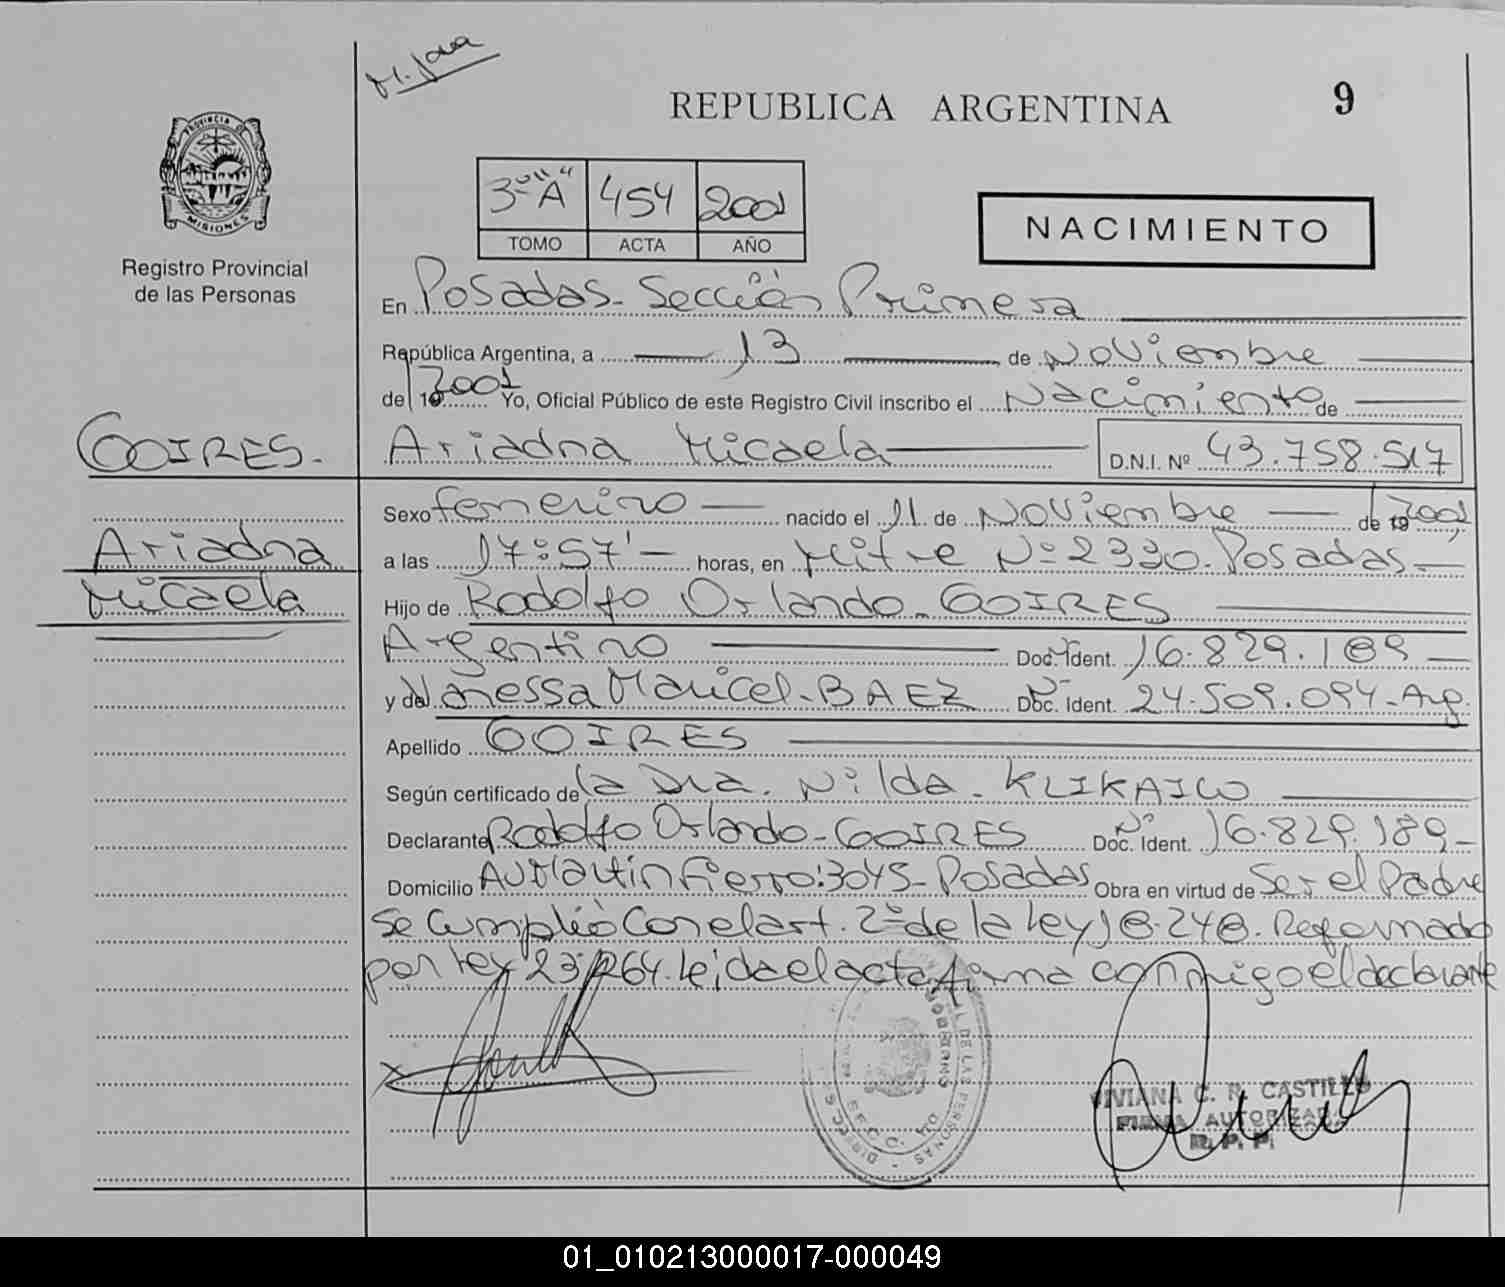 M. Jara
REPUBLICA ARGENTINA
9
PROVINCIA DE
MISIONES
Registro Provincial
de las Personas
3º "A" 454 2001
TOMO ACTA AÑO
NACIMIENTO
En Posadas - Sección Primera
República Argentina, a 13 de Noviembre
de 19 2001 Yo, Oficial Público de este Registro Civil inscribo el Nacimiento de
GOIRES.
Ariadna Micaela D.N.I. Nº 43.758.517
Sexo femenino nacido el 11 de Noviembre de 19 2001
Ariadna
a las 17:57' horas, en Mitre Nº 2330. Posadas
Micaela
Hijo de Rodolfo Orlando - GOIRES
Argentino Doc. Ident. 16.829.189
y de Vanessa Maricel - BAEZ Doc. Ident. 24.509.094 - Arg.
Apellido GOIRES
Según certificado de la Dra. Nilda - KLIKAILO
Declarante Rodolfo Orlando - GOIRES Doc. Ident. Nº 16.829.189 -
Domicilio Av Martín Fierro: 3045 - Posadas Obra en virtud de Ser el Padre
Se Cumplió Con el art. 2º de la Ley 18.248. Reformado
por Ley 23.264. leída el acta firma conmigo el declarante
VIVIANA C. R. CASTILLO
FIRMA AUTORIZADA
R. P. P.
01_010213000017-000049